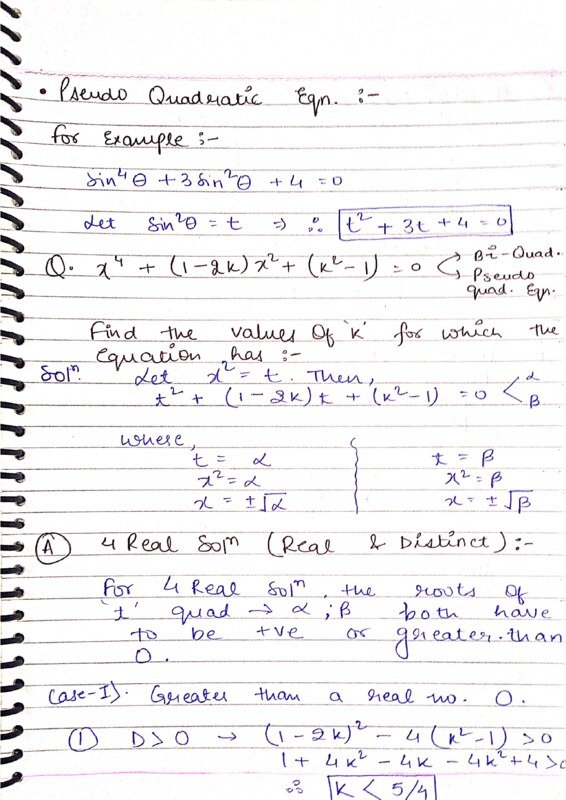 • Pseudo Quadratic Eqn. :-
for Example :-
sin⁴θ + 3 sin²θ + 4 = 0
Let sin²θ = t ⇒ ∴ t² + 3t + 4 = 0
Q. x⁴ + (1-2k)x² + (k²-1) = 0 → Bi-Quad.
→ Pseudo quad. Eqn.
Find the values Of 'k' for which the
Equation has :-
Solⁿ. Let x² = t. Then,
t² + (1-2k)t + (k²-1) = 0 < α β
where,
t = α t = β
x² = α x² = β
x = ±√α x = ±√β
(A) 4 Real Solⁿ (Real & Distinct) :-
For 4 Real Solⁿ. the roots Of
't' quad → α ; β both have
to be +ve or greater than
0.
Case-I). Greater than a real no. 0.
(1) D > 0 → (1-2k)² - 4(k²-1) > 0
1 + 4k² - 4k - 4k² + 4 > 0
∴ k < 5/4